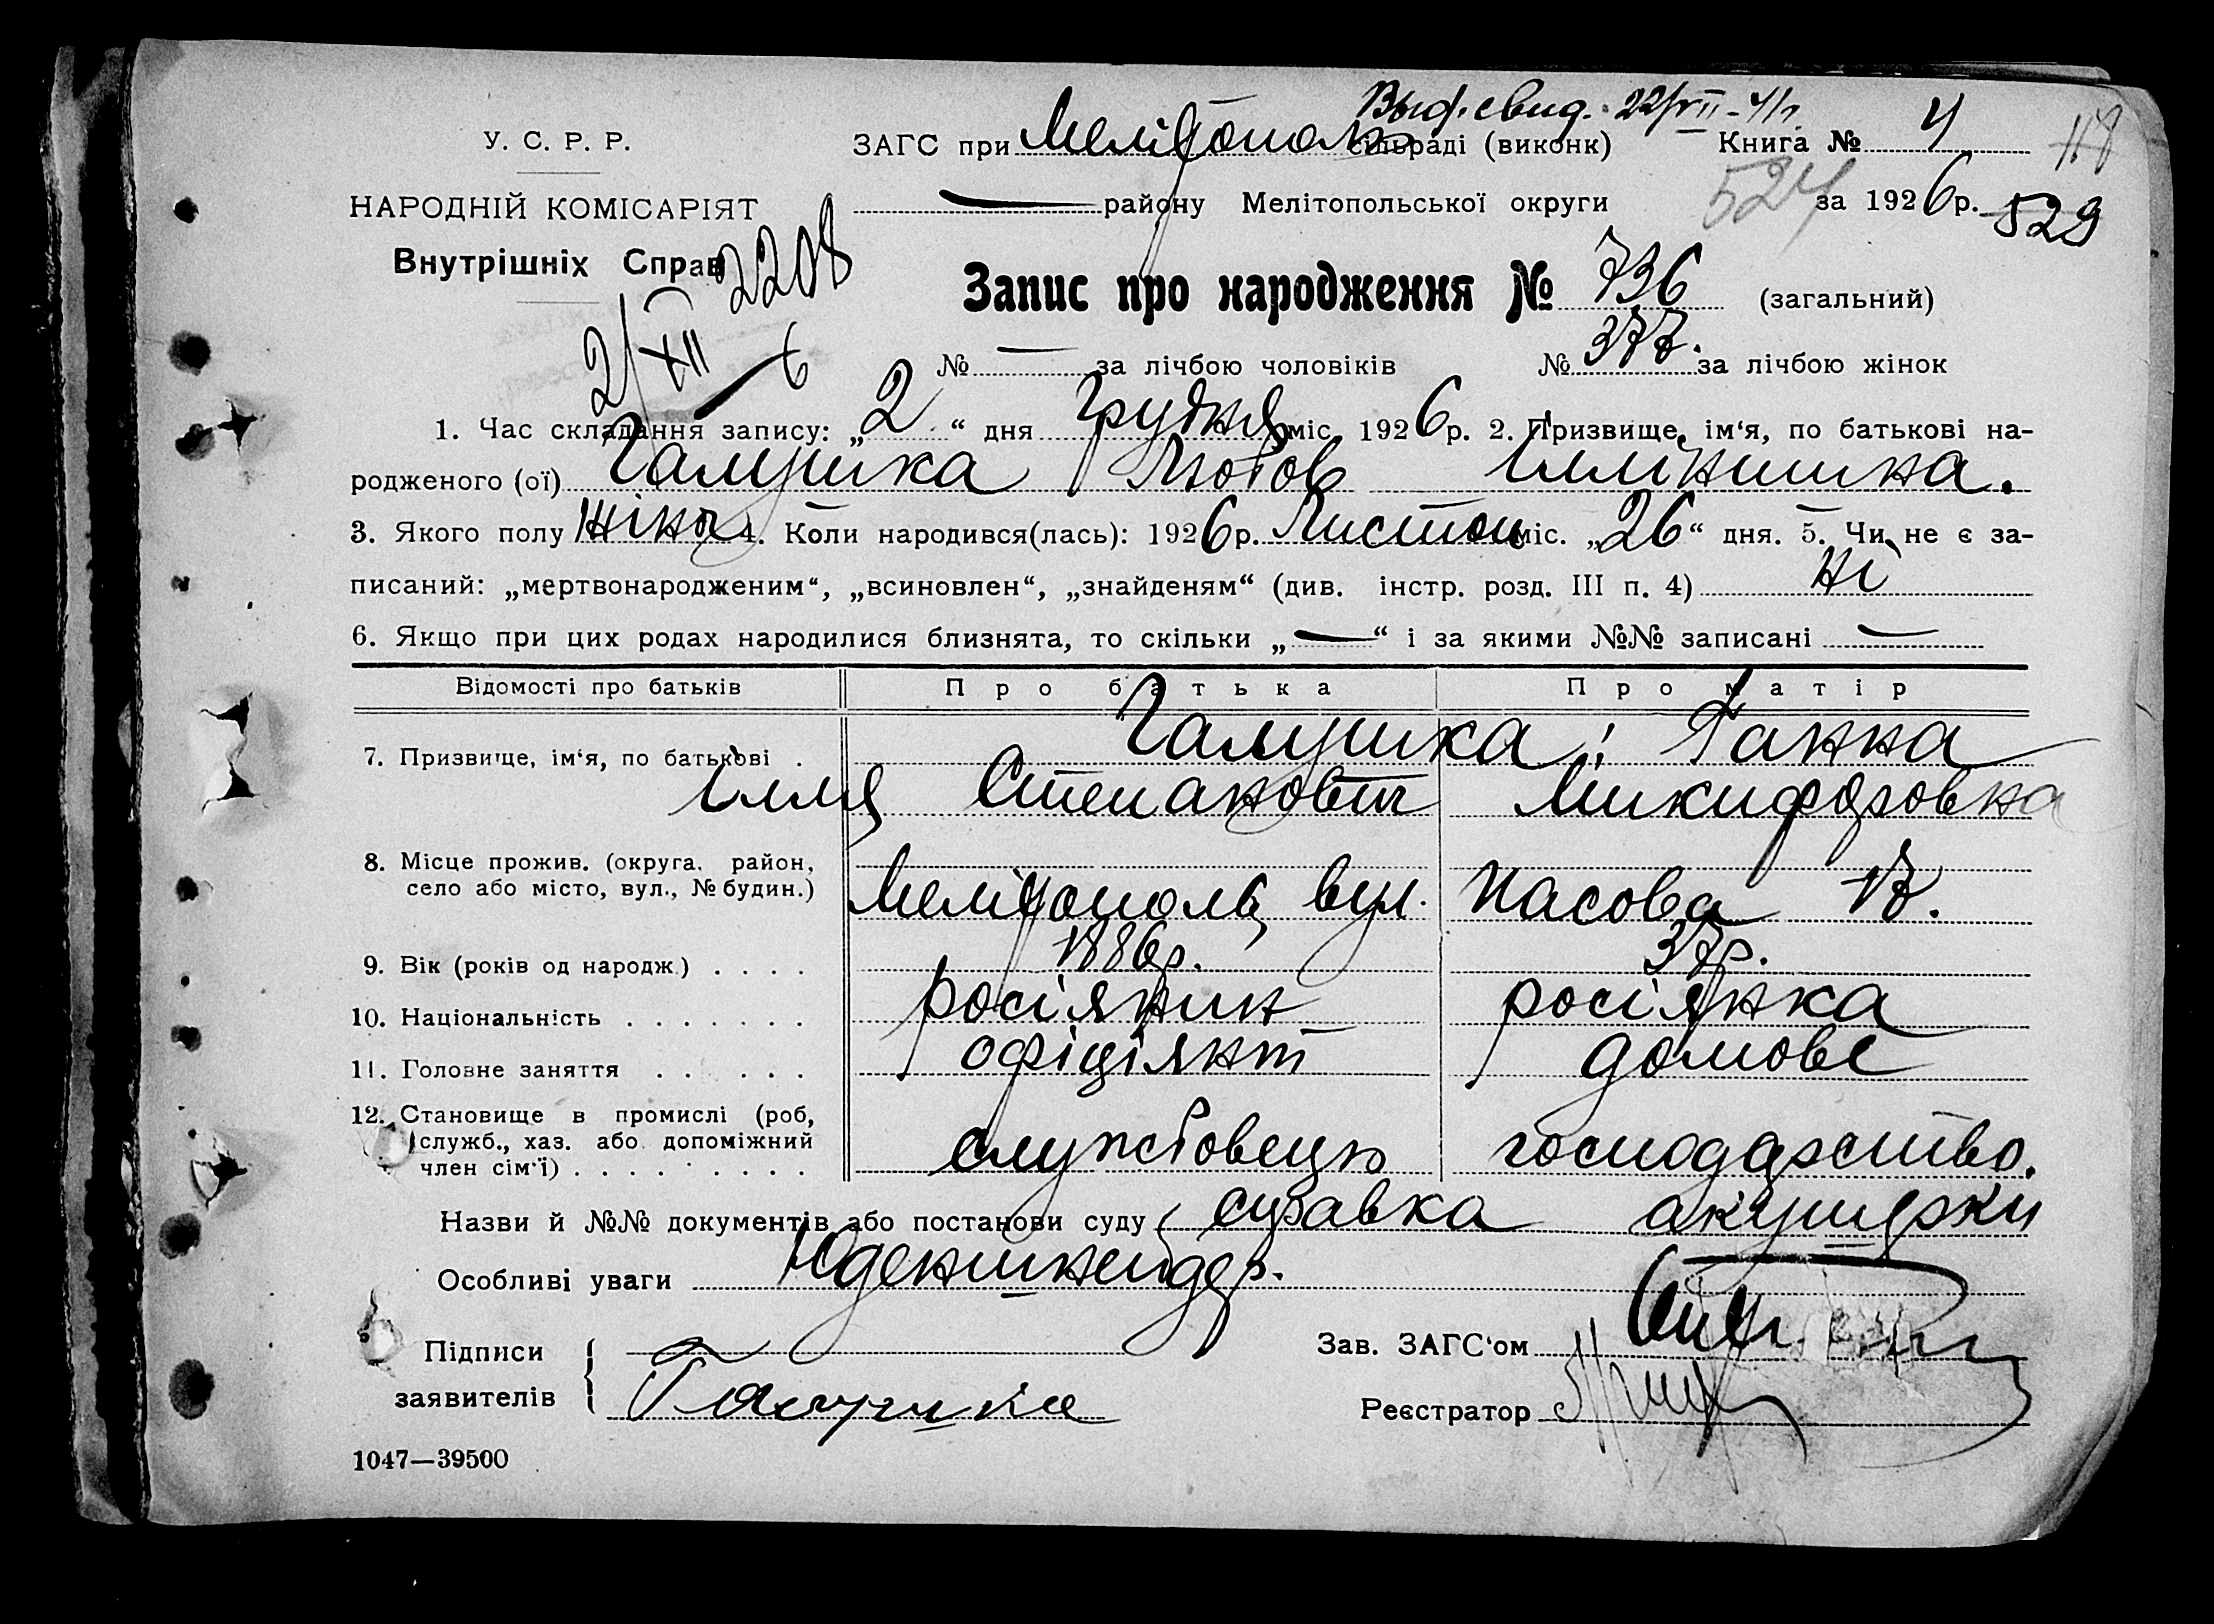 Выд. свид. 22/VII-41г.
У. С. Р. Р.
ЗАГС при Мелітополь сільраді (виконк) Книга № 4
118
НАРОДНІЙ КОМІСАРІЯТ
района Мелітопольської округи 524 за 1926 р. 529
Внутрішніх Справ
2208
2/XII 6
Запис про народження № 736 (загальний)
№ — за лічбою чоловіків № 377. за лічбою жінок
1. Час складання запису: „2“ дня Грудня міс. 1926 р. 2. Призвище, ім‘я, по батькові на-
родженого (ої) Галушка Любов Іллінишна.
3. Якого полу жіноч 4. Коли народився(лась): 1926 р. Листоп міс. „26“ дня. 5. Чи не є за-
писаний: „мертвонародженим“, „всиновлен“, „знайденям“ (див. інстр. розд. III п. 4) ні
6. Якщо при цих родах народилися близнята, то скільки „—“ і за якими №№ записані —
Відомості про батьків Про батька Про матір
7. Призвище, ім‘я, по батькові . Галушка: Ганна
Ілля Степанович Микифоровна
8. Місце прожив. (округа, район,
село або місто, вул., № будин.) Мелітополь, вул. Пасова 17.
9. Вік (років од народж.) . . . . 1886р. 37р.
10. Національність . . . . . . . росіянин росіянка
11. Головне заняття . . . . . офіціянт домове
12. Становище в промислі (роб,
служб., хаз. або допоміжний
член сім‘ї) . . . . . . . . . службовець господарство.
Назви й №№ документів або постанови суду справка акушерки
Особливі уваги Юденшнейдер.
Підписи
заявителів Галушка
Зав. ЗАГС‘ом
Реєстратор
1047—39500